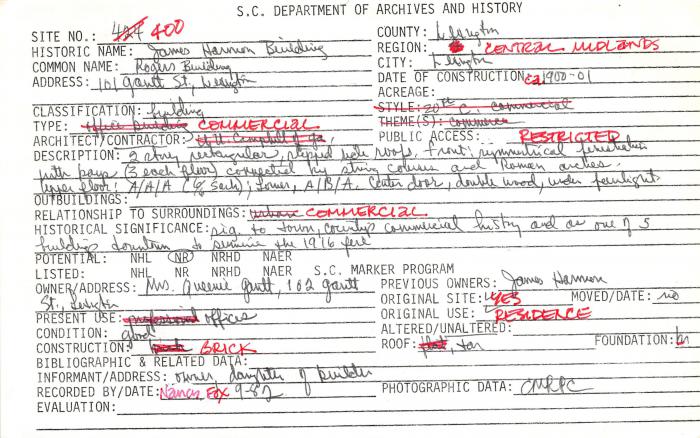 S.C. DEPARTMENT OF ARCHIVES AND HISTORY
SITE NO.: 424 400
COUNTY: Lexington
HISTORIC NAME: James Harmon Building
REGION: CENTRAL MIDLANDS
COMMON NAME: Rogers Building
CITY: Lexington
ADDRESS: 101 Gantt St., Lexington
DATE OF CONSTRUCTION: ca 1900-01
ACREAGE:
CLASSIFICATION: building
STYLE: 20th C. commercial
TYPE: office building COMMERCIAL
THEME(S): commerce
ARCHITECT/CONTRACTOR:
PUBLIC ACCESS: RESTRICTED
DESCRIPTION: 2 story rectangular, stepped side roofs. Front: symmetrical fenestration
with bays (3 each floor) connected by string course and Roman arches.
Upper floor: A/A/A (4/4 sash); Lower, A/B/A. Center door, double wood, under fanlights
OUTBUILDINGS:
RELATIONSHIP TO SURROUNDINGS: urban COMMERCIAL
HISTORICAL SIGNIFICANCE: sig. to town, county commercial history and as one of 5
buildings downtown to survive the 1916 fire
POTENTIAL: NHL NR NRHD NAER
LISTED: NHL NR NRHD NAER S.C. MARKER PROGRAM
OWNER/ADDRESS: Mrs. Queenie Gantt, 102 Gantt
St., Lexington
PREVIOUS OWNERS: James Harmon
ORIGINAL SITE: YES MOVED/DATE: no
PRESENT USE: professional offices
ORIGINAL USE: RESIDENCE
CONDITION: good
ALTERED/UNALTERED:
CONSTRUCTION: BRICK
ROOF: flat, tar FOUNDATION: br
BIBLIOGRAPHIC & RELATED DATA:
INFORMANT/ADDRESS: owner, daughter of builder
RECORDED BY/DATE: Nancy Fox 9-82
PHOTOGRAPHIC DATA: CMRPC
EVALUATION: